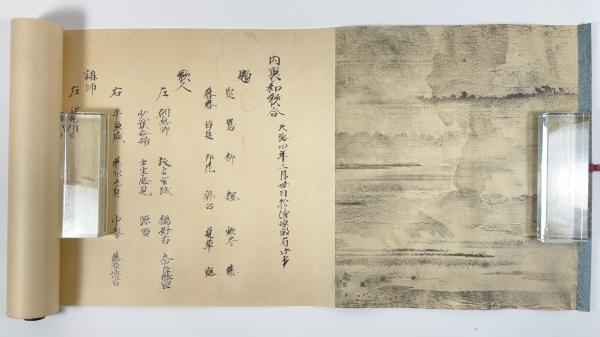 内裏和歌合 天徳四年三月卅日於清涼殿有此事
題
霞 鶯 柳 桜 款冬 藤
暮春 首夏 卯花 郭公 夏草 恋
歌人
左 朝忠卿 坂上望城 橘好古 大中臣能宣
少貳命婦 壬生忠見 源順
右 平兼盛 藤原元真 中務 藤原博古
講師
左